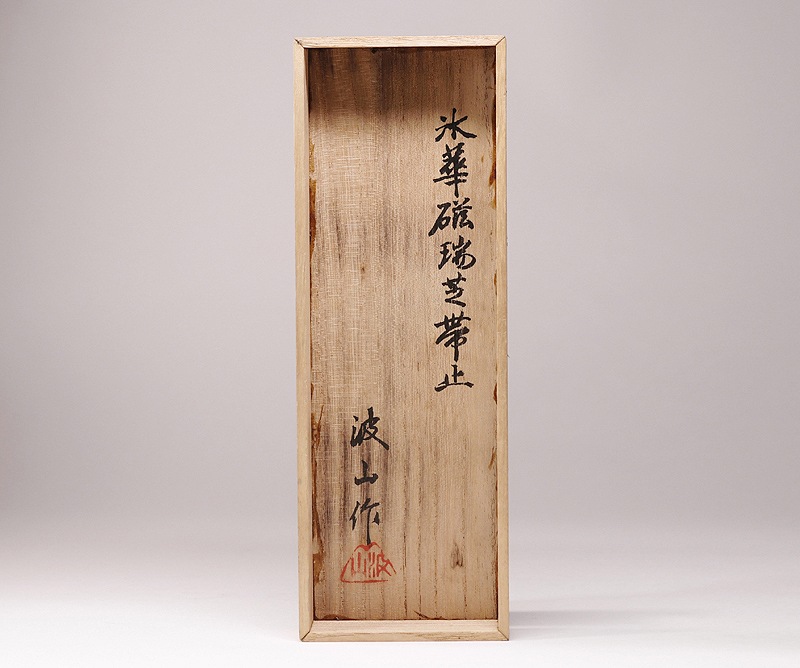 氷華磁瑞芝帯止
波山作
波山